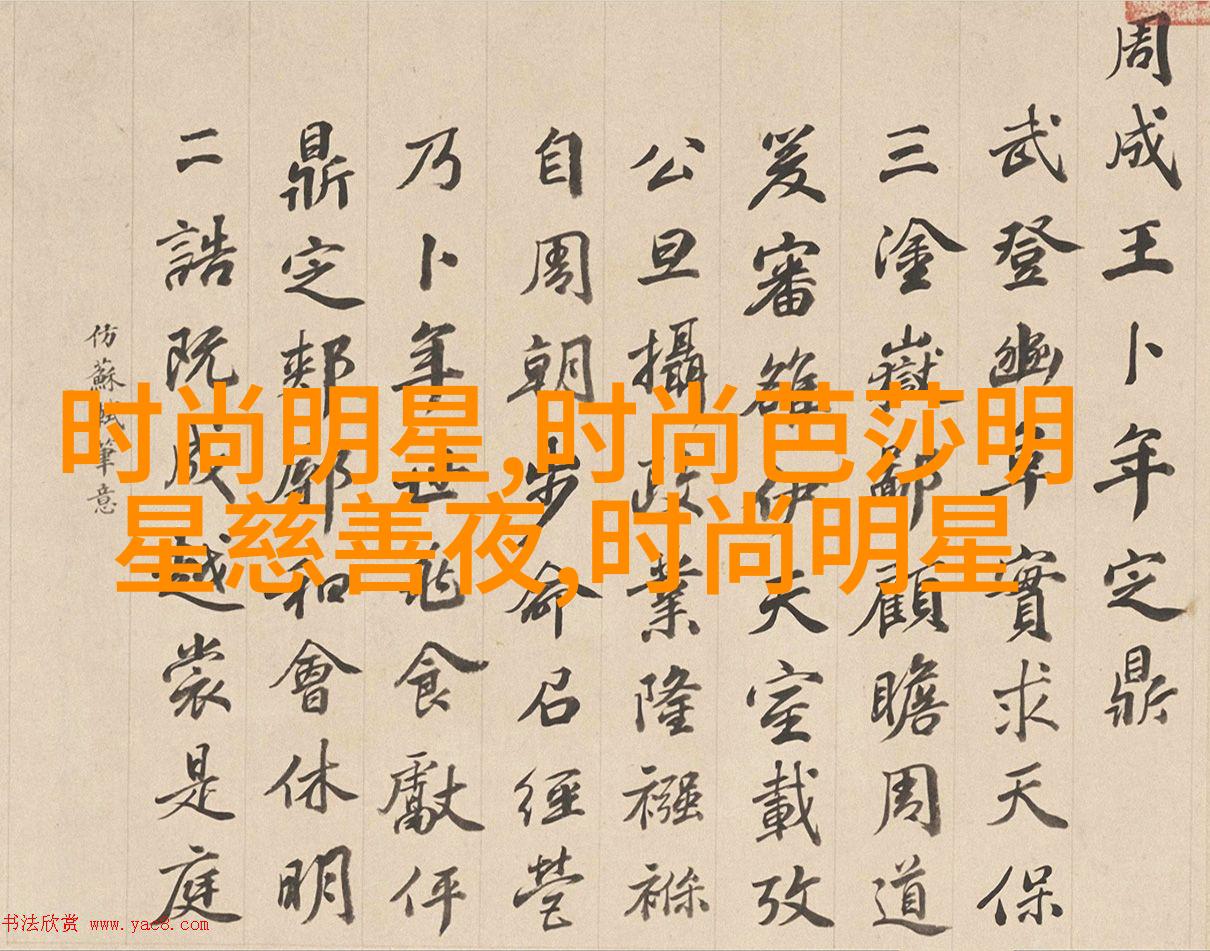 周成王卜年定鼎
武登豳阜實求天保
三塗嶽鄙顧瞻周道
爰審雒伊天室載攷
公旦攝政業隆襁褓
自周朝步命召經營
乃卜年世兆食獻伻
鼎定郟鄏和會休明
二誥既成越裳是庭
仿蘇軾筆意
时尚明星,时尚芭莎明
星慈善夜,时尚明星
书法欣赏 www.yac8.com